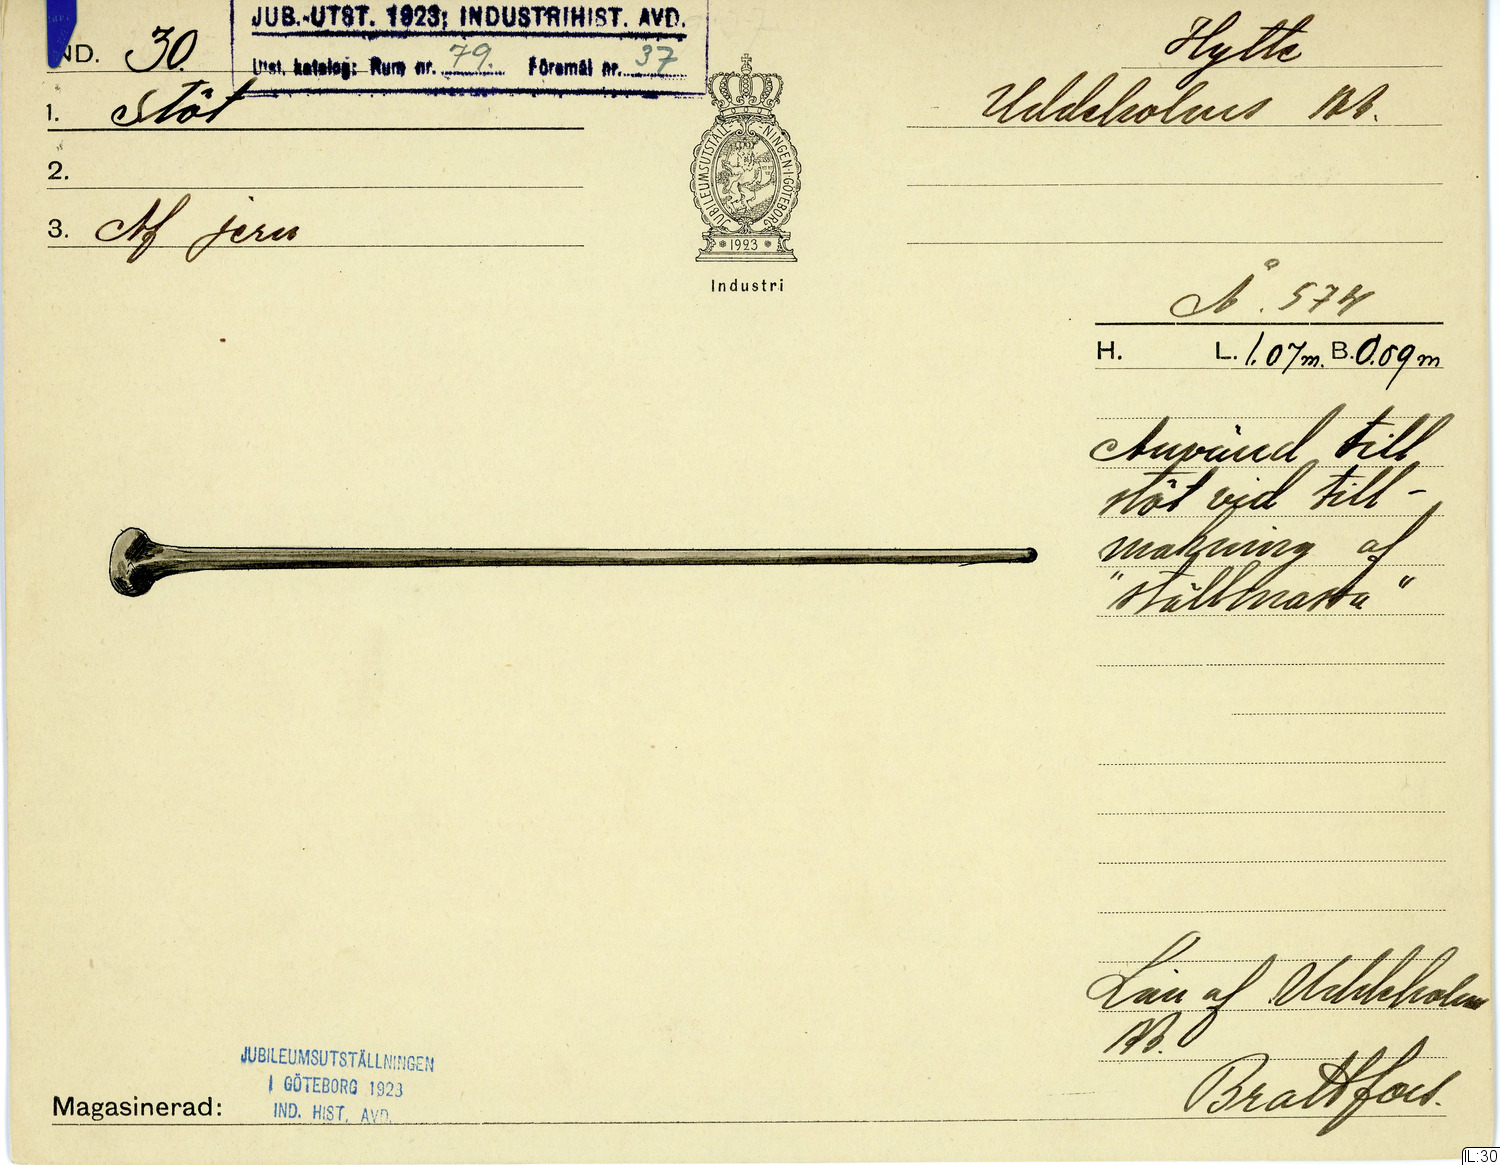 JUB.-UTST. 1923; INDUSTRIHIST. AVD.
Utst. katalog: Rum nr. 79. Föremål nr. 37
IND. 30.
1. Stöt
2.
3. Af jern
JUBILEUMSUTSTÄLLNINGEN I GÖTEBORG
1923
Industri
Hytte
Uddeholms AB.
Å. 574
H. L. 1.07 m. B. 0.09 m
Använd till
stöt vid till-
makning af
"ställmassa"
Lån af Uddeholms
AB.
Brattfors.
JUBILEUMSUTSTÄLLNINGEN
I GÖTEBORG 1923
IND. HIST. AVD.
Magasinerad:
IL:30